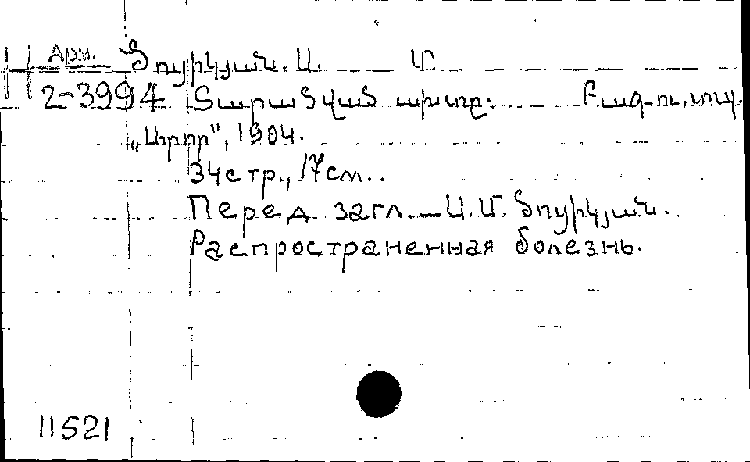 Арм. Տուրկյան. Ա. Մ
2-3994 Տարածված ախտը. Բագու, տպ.
„Արոր", 1904.
34стр., 17см..
Перед загл. — Ա. Մ. Տուրկյան.
Распространенная болезнь.
11521